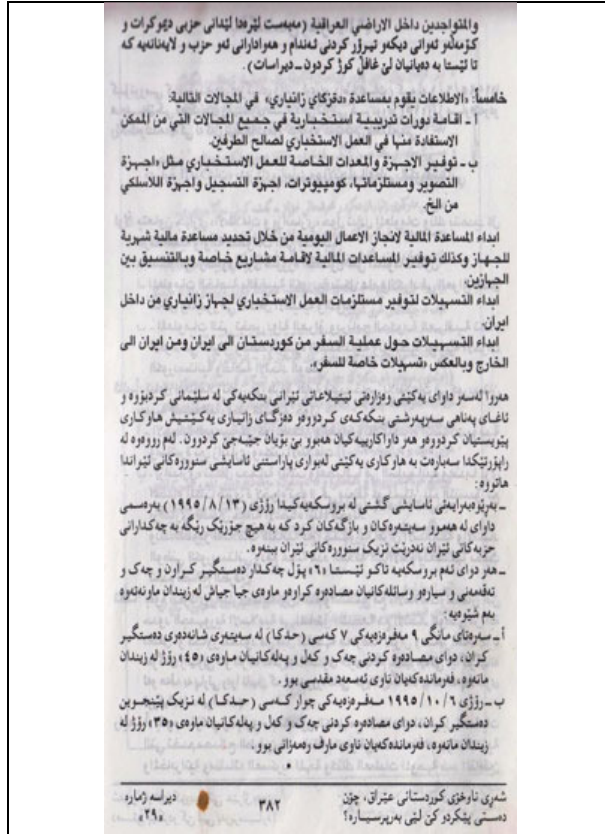 والمتواجدين داخل الاراضي العراقية (مەبەست لێرەدا لێدانی حزبی دیموکرات و
کۆمەڵەو ئەوانی دیکەو تیرۆر کردنی ئەندام و هەوادارانی ئەو حزب و لایەنانەیە کە
تا ئێستا بە دەیانیان لێ غافڵ کوژ کردون ـ دیراسات).
خامساً: «الاطلاعات يقوم بمساعدة «دەزگای زانیاری» في المجالات التالية:
أ ـ اقامة دورات تدريبية استخبارية في جميع المجالات التي من الممكن
الاستفادة منها في العمل الاستخباري لصالح الطرفين.
ب ـ توفير الاجهزة والمعدات الخاصة للعمل الاستخباري مثل «اجهزة
التصوير ومستلزماتها، كومبيوترات، اجهزة التسجيل واجهزة اللاسلكي
من الخ.
ابداء المساعدة المالية لانجاز الاعمال اليومية من خلال تحديد مساعدة مالية شهرية
للجهاز وكذلك توفير المساعدات المالية لاقامة مشاريع خاصة وبالتنسيق بين
الجهازين.
ابداء التسهيلات لتوفير مستلزمات العمل الاستخباري لجهاز زانياري من داخل
ايران.
ابداء التسهيلات حول عملية السفر من كوردستان الى ايران ومن ايران الى
الخارج وبالعكس «تسهيلات خاصة للسفر».
هەروا لەسەر داوای یەکێتی وەزارەتی ئیتیلاعاتی ئێرانی بنکەیەکی لە سلێمانی کردبۆوە و
ئاغای پەناهی سەرپەرشتی بنکەکەی کردووەو دەزگای زانیاری یەکێتیش هاوکاری
پێویستیان کردووەو هەر داراکارییەکیان هەبوو بێ بۆیان جێبەجێ کردوون. لەم رووەوە لە
راپۆرتێکدا سەبارەت بە هاوکاری یەکێتی لەبواری پاراستنی ئاسایشی سنوورەکانی ئێراندا
هاتووە:
ـ بەڕێوەبەرایەتی ئاسایشی گشتی لە بروسکەیەکیدا رۆژی (١٩٩٥/٨/١٣) بەرەسمی
داوای لە هەموو سەیتەرەکان و بازگەکان کرد کە بە هیچ جۆرێک رێگە بە چەکدارانی
حزبەکانی ئێران نەدرێت نزیک سنوورەکانی ئێران ببنەوە.
ـ هەر دوای ئەم بروسکەیە تاکو ئێستا «٦» پۆل چەکدار دەستگیر کراون و چەک و
تەقەمەنی و سیارەو وسائلەکانیان مصادەرە کراوەو ماوەی جیا جیاش لە زیندان ماونەتەوە
بەم شێوەیە:
أ ـ سەرەتای مانگی ٩ مەفرەزەیەکی ٧ کەسی (حدکا) لە سەیتەری شانەدەری دەستگیر
کران، دوای مصادەرە کردنی چەک و کەل و پەلەکانیان ماوەی «٤٥» رۆژ لە زیندان
مانەوە، فەرماندەکەیان ناوی ئەسعەد مقدسی بوو.
ب ـ رۆژی ١٩٩٥/١٠/٦ مەفرەزەیەکی چوار کەسی (حدکا) لە نزیک پێنجوین
دەستگیر کران، دوای مصادەرە کردنی چەک و کەل و پەلەکانیان ماوەی «٣٥» رۆژ لە
زیندان مانەوە، فەرماندەکەیان ناوی مارف رەمەزانی بوو.
شەڕی ناوخۆی کوردستانی عێراق، چۆن
دەستی پێکردو کێ لێی بەرپرسیارە؟
٣٨٢
دیراسە ژمارە
«٢٩»